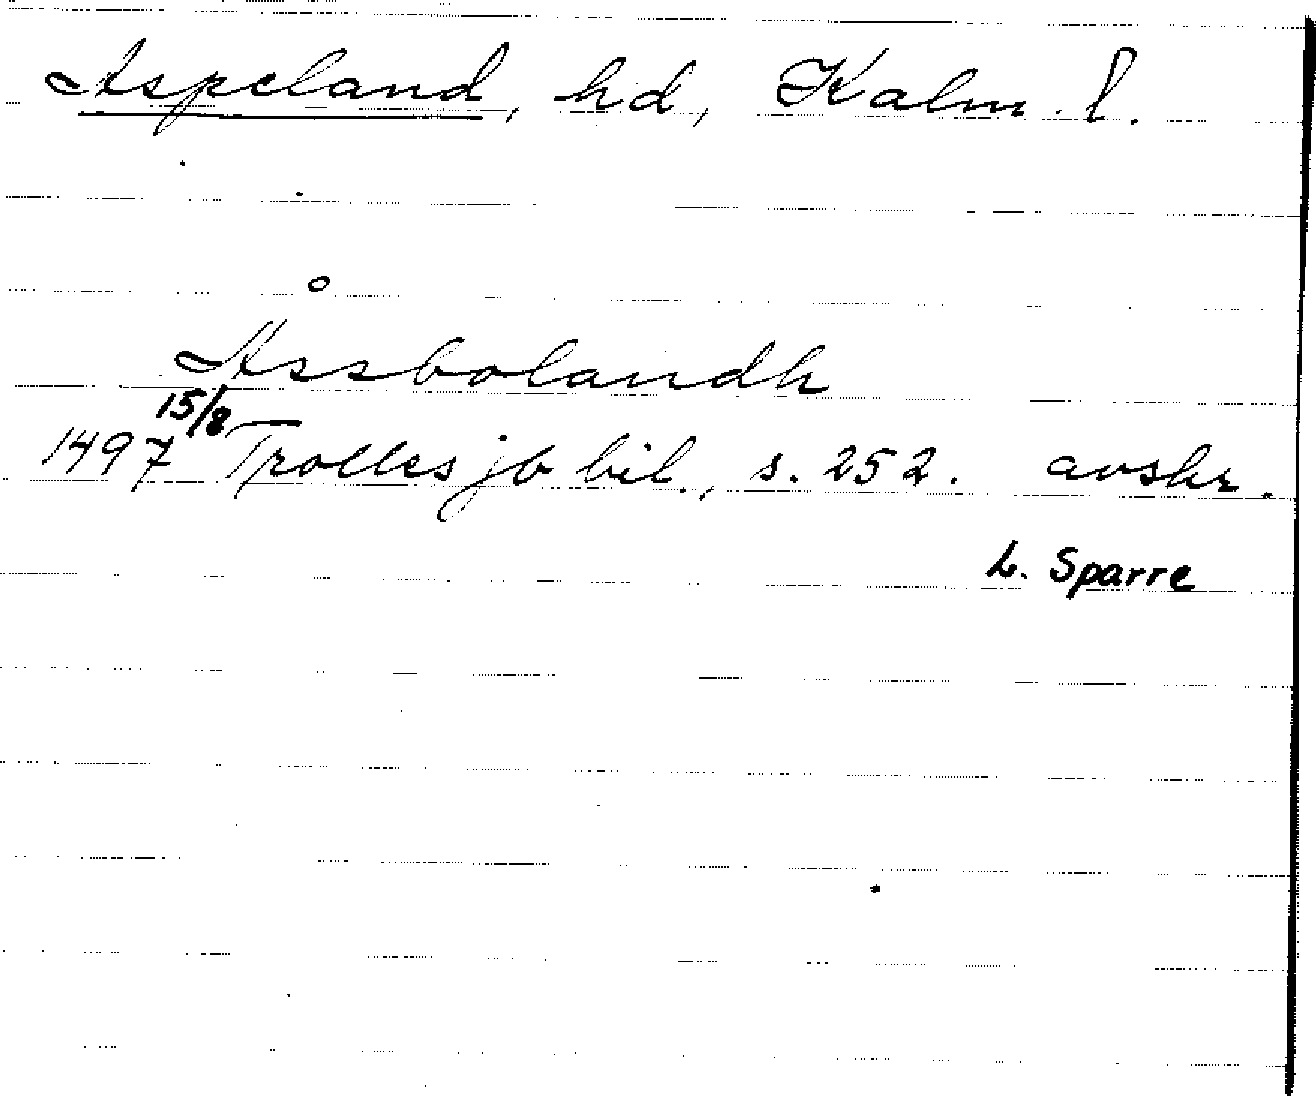 Aspeland, hd, Kalm. l.
Åssbolandh
1497 15/8 Trolles jb bil., s. 252. avskr.
L. Sparre